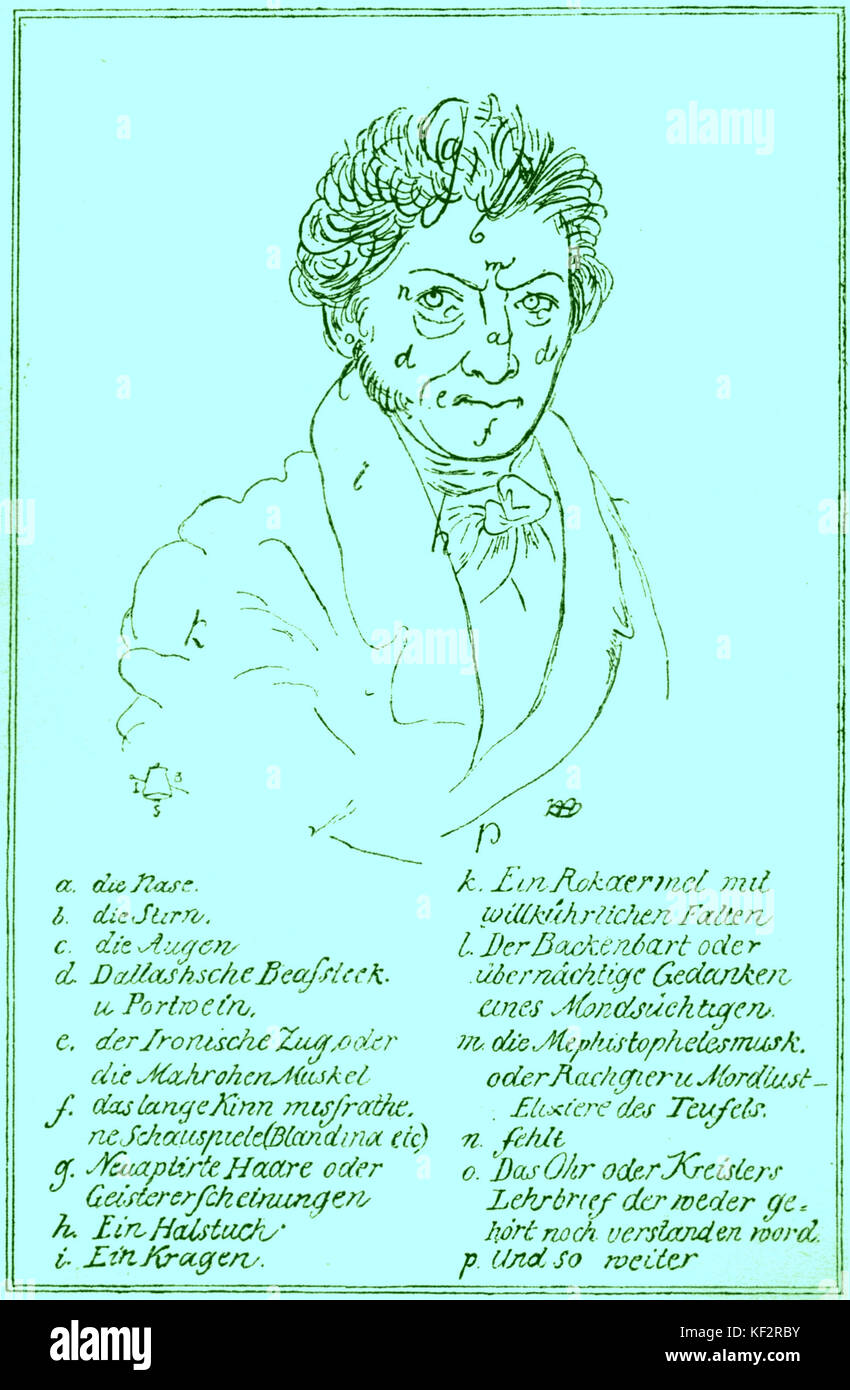 g
b
m
n
a
o
d
d
l
e
f
i
h
k
I B
S
p
a. die Nase.
b. die Stirn.
c. die Augen
d. Dallashsche Beafsteek.
u Portwein.
e. der Ironische Zug, oder
die Mahrohen Muskel
f. das lange Kinn misfrathe,
ne Schauspiele (Blandina etc)
g. Neuaptirte Haare oder
Geistererscheinungen
h. Ein Halstuch.
i. Ein Kragen.
k. Ein Rokaermel mit
willkührlichen Falten
l. Der Backenbart oder
übernächtige Gedanken
eines Mondsüchtigen.
m. die Mephistophelesmusk.
oder Rachgier u Mordlust_
Elixiere des Teufels.
n. fehlt
o. Das Ohr oder Kreislers
Lehrbrief der weder ge=
hört noch verstanden word.
p. Und so weiter
a alamy
a a
alamy
alamy a
a alamy
alamy
Image ID: KF2RBY
www.alamy.com